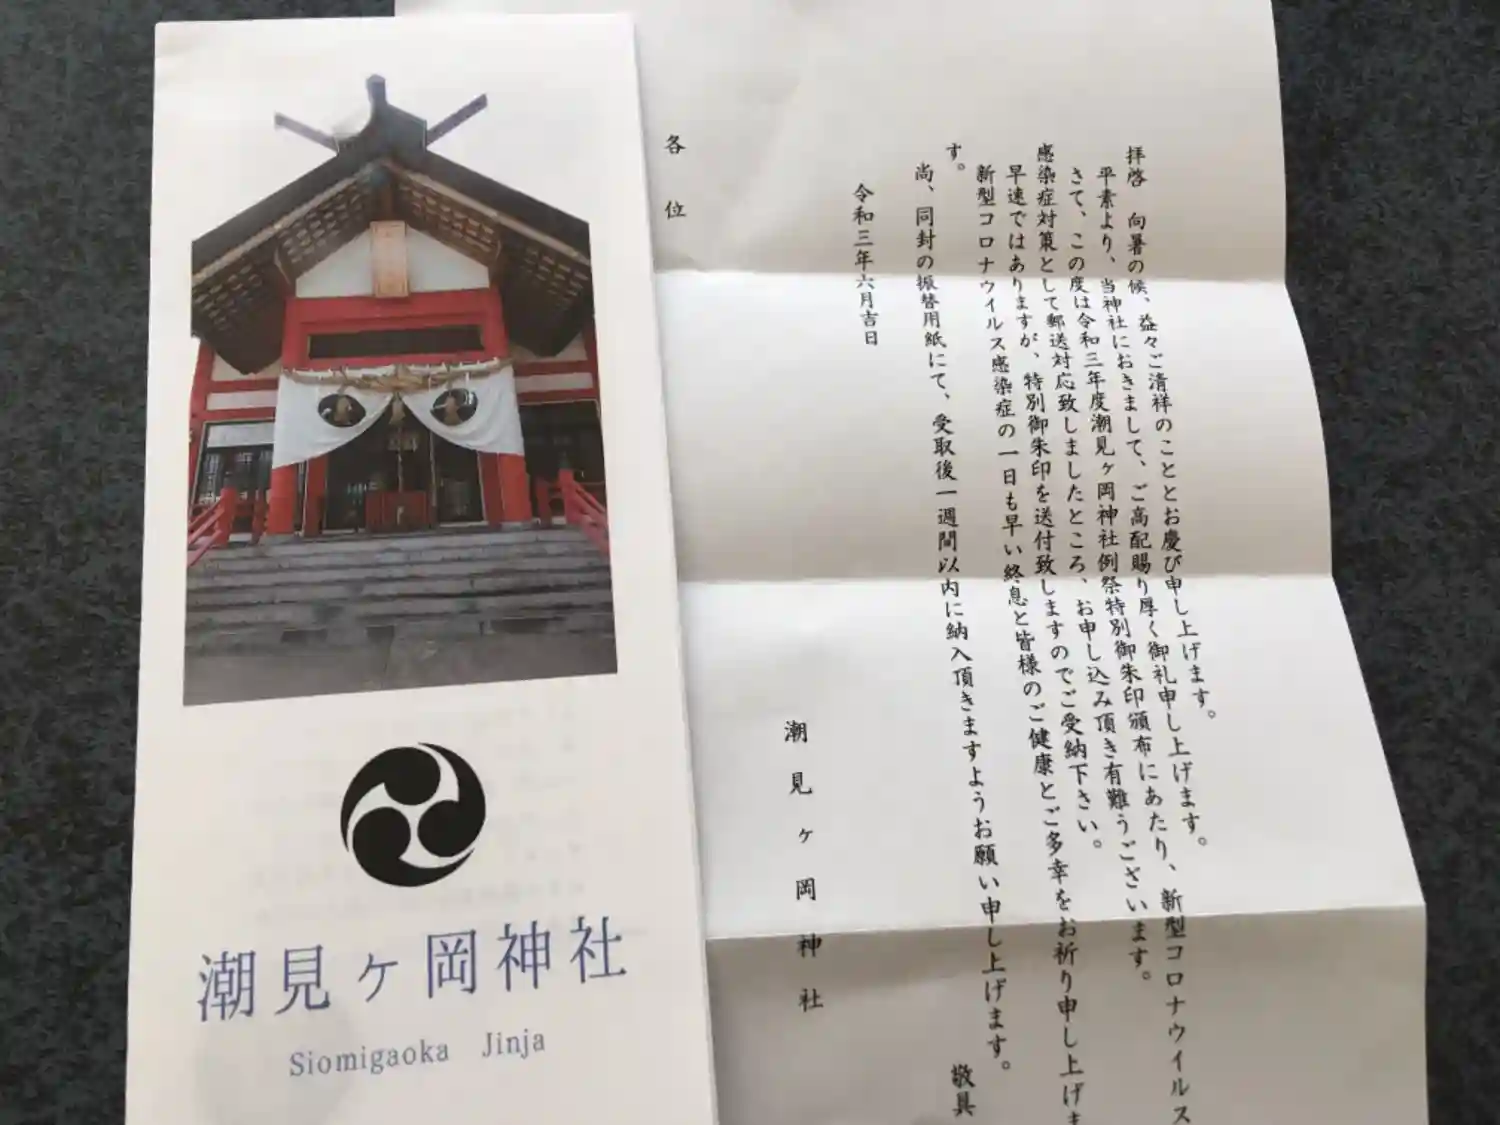 潮見ヶ岡神社
Siomigaoka Jinja
拝啓 向暑の候、益々ご清祥のこととお慶び申し上げます。
平素より、当神社におきまして、ご高配賜り厚く御礼申し上げます。
さて、この度は令和三年度潮見ヶ岡神社例祭特別御朱印頒布にあたり、新型コロナウイルス
感染症対策として郵送対応致しましたところ、お申し込み頂き有難うございます。
早速ではありますが、特別御朱印を送付致しますのでご受納下さい。
新型コロナウイルス感染症の一日も早い終息と皆様のご健康とご多幸をお祈り申し上げま
す。
尚、同封の振替用紙にて、受取後一週間以内に納入頂きますようお願い申し上げます。
敬具
令和三年六月吉日
潮見ヶ岡神社
各位